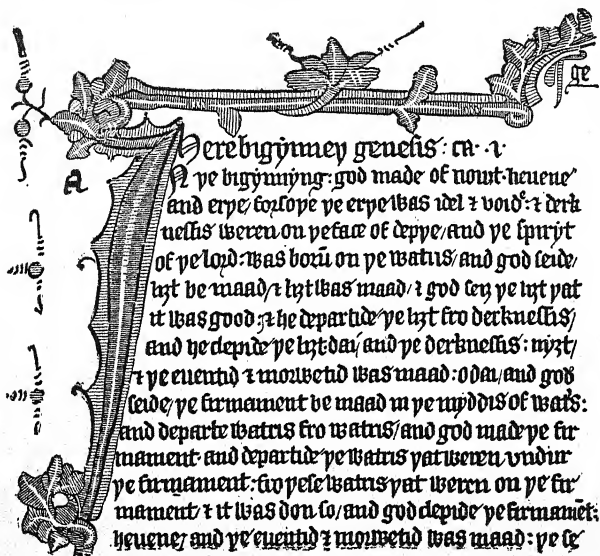 ge
Here bigynney genesis: ca· i·
a
N ye bigynnyng: god made of nouȝt heuene
and erye/ forsoye ye erye was idel ⁊ void: ⁊ derk
nessis weren on ye face of depye/ and ye spiryt
of ye lord: was borū on ye watris/ and god seide/
liȝt be maad/ ⁊ liȝt was maad/ ⁊ god seȝ ye liȝt yat
it was good: ⁊ he departide ye liȝt fro derknessis/
and he clepide ye liȝt dai/ and ye derknessis: nyȝt/
⁊ ye euentid ⁊ morwetid was maad: o dai/ and god
seide/ ye firmament be maad in ye myddis of wat͛s:
and departe watris fro watris/ and god made ye fir
mament· and departide ye watris yat weren vndur
ye firmament: fro yese watris yat weren on ye fir
mament/ ⁊ it was don so/ and god clepide ye firmamēt:
heuene/ and ye euentid ⁊ morwetid was maad: ye se